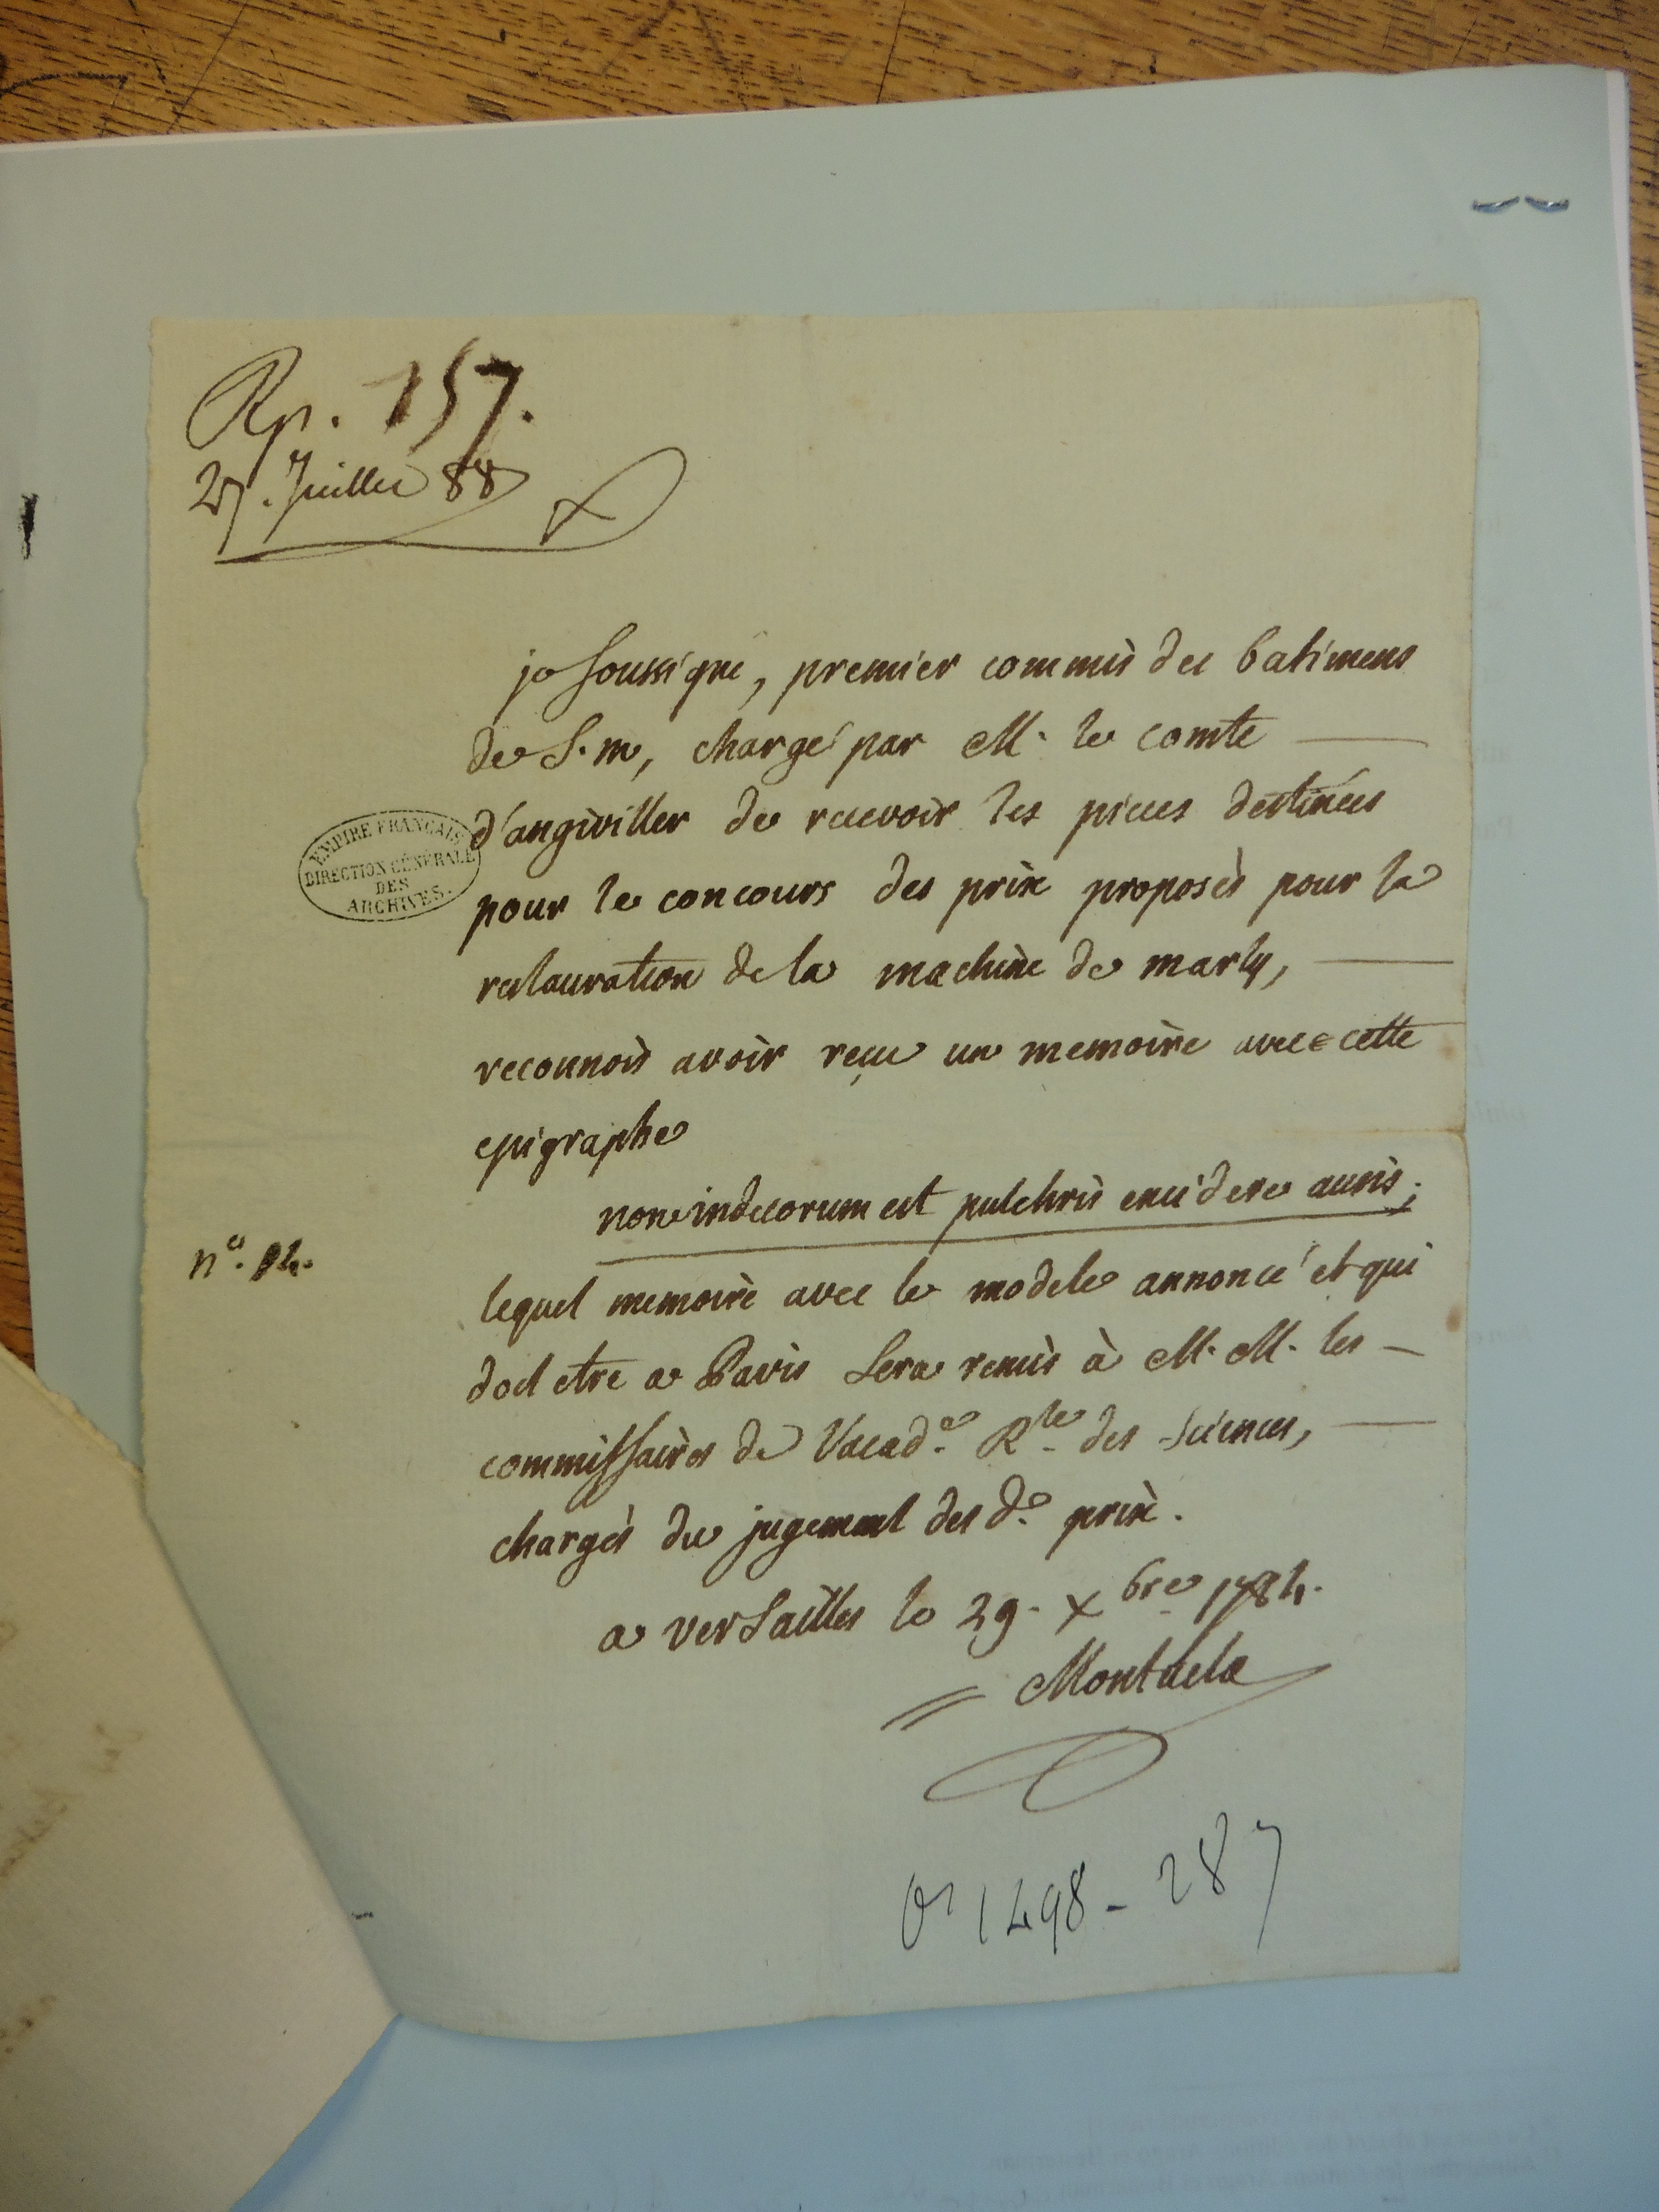 Rp. 157.
27. Juillet 88
je soussigné, premier commis des batimens
de S. m, chargé par M. le comte
d'angiviller de recevoir les pieces destinées
EMPIRE FRANÇAIS
DIRECTION GÉNÉRALE
DES
ARCHIVES.
pour le concours des prix proposés pour la
restauration de la machine de marly,
reconnois avoir reçu un memoire avec cette
epigraphe
non indecorum est pulchris excidere ausis;
n°. 84.
lequel memoire avec le modele annoncé et qui
doit etre a Paris sera remis à M. M. les
commissaires de l'acad.e R.le des sciences,
chargés du jugement des d.o prix.
a versailles le 29. Xbre 1784.
Montucla
O1 1498 - 287